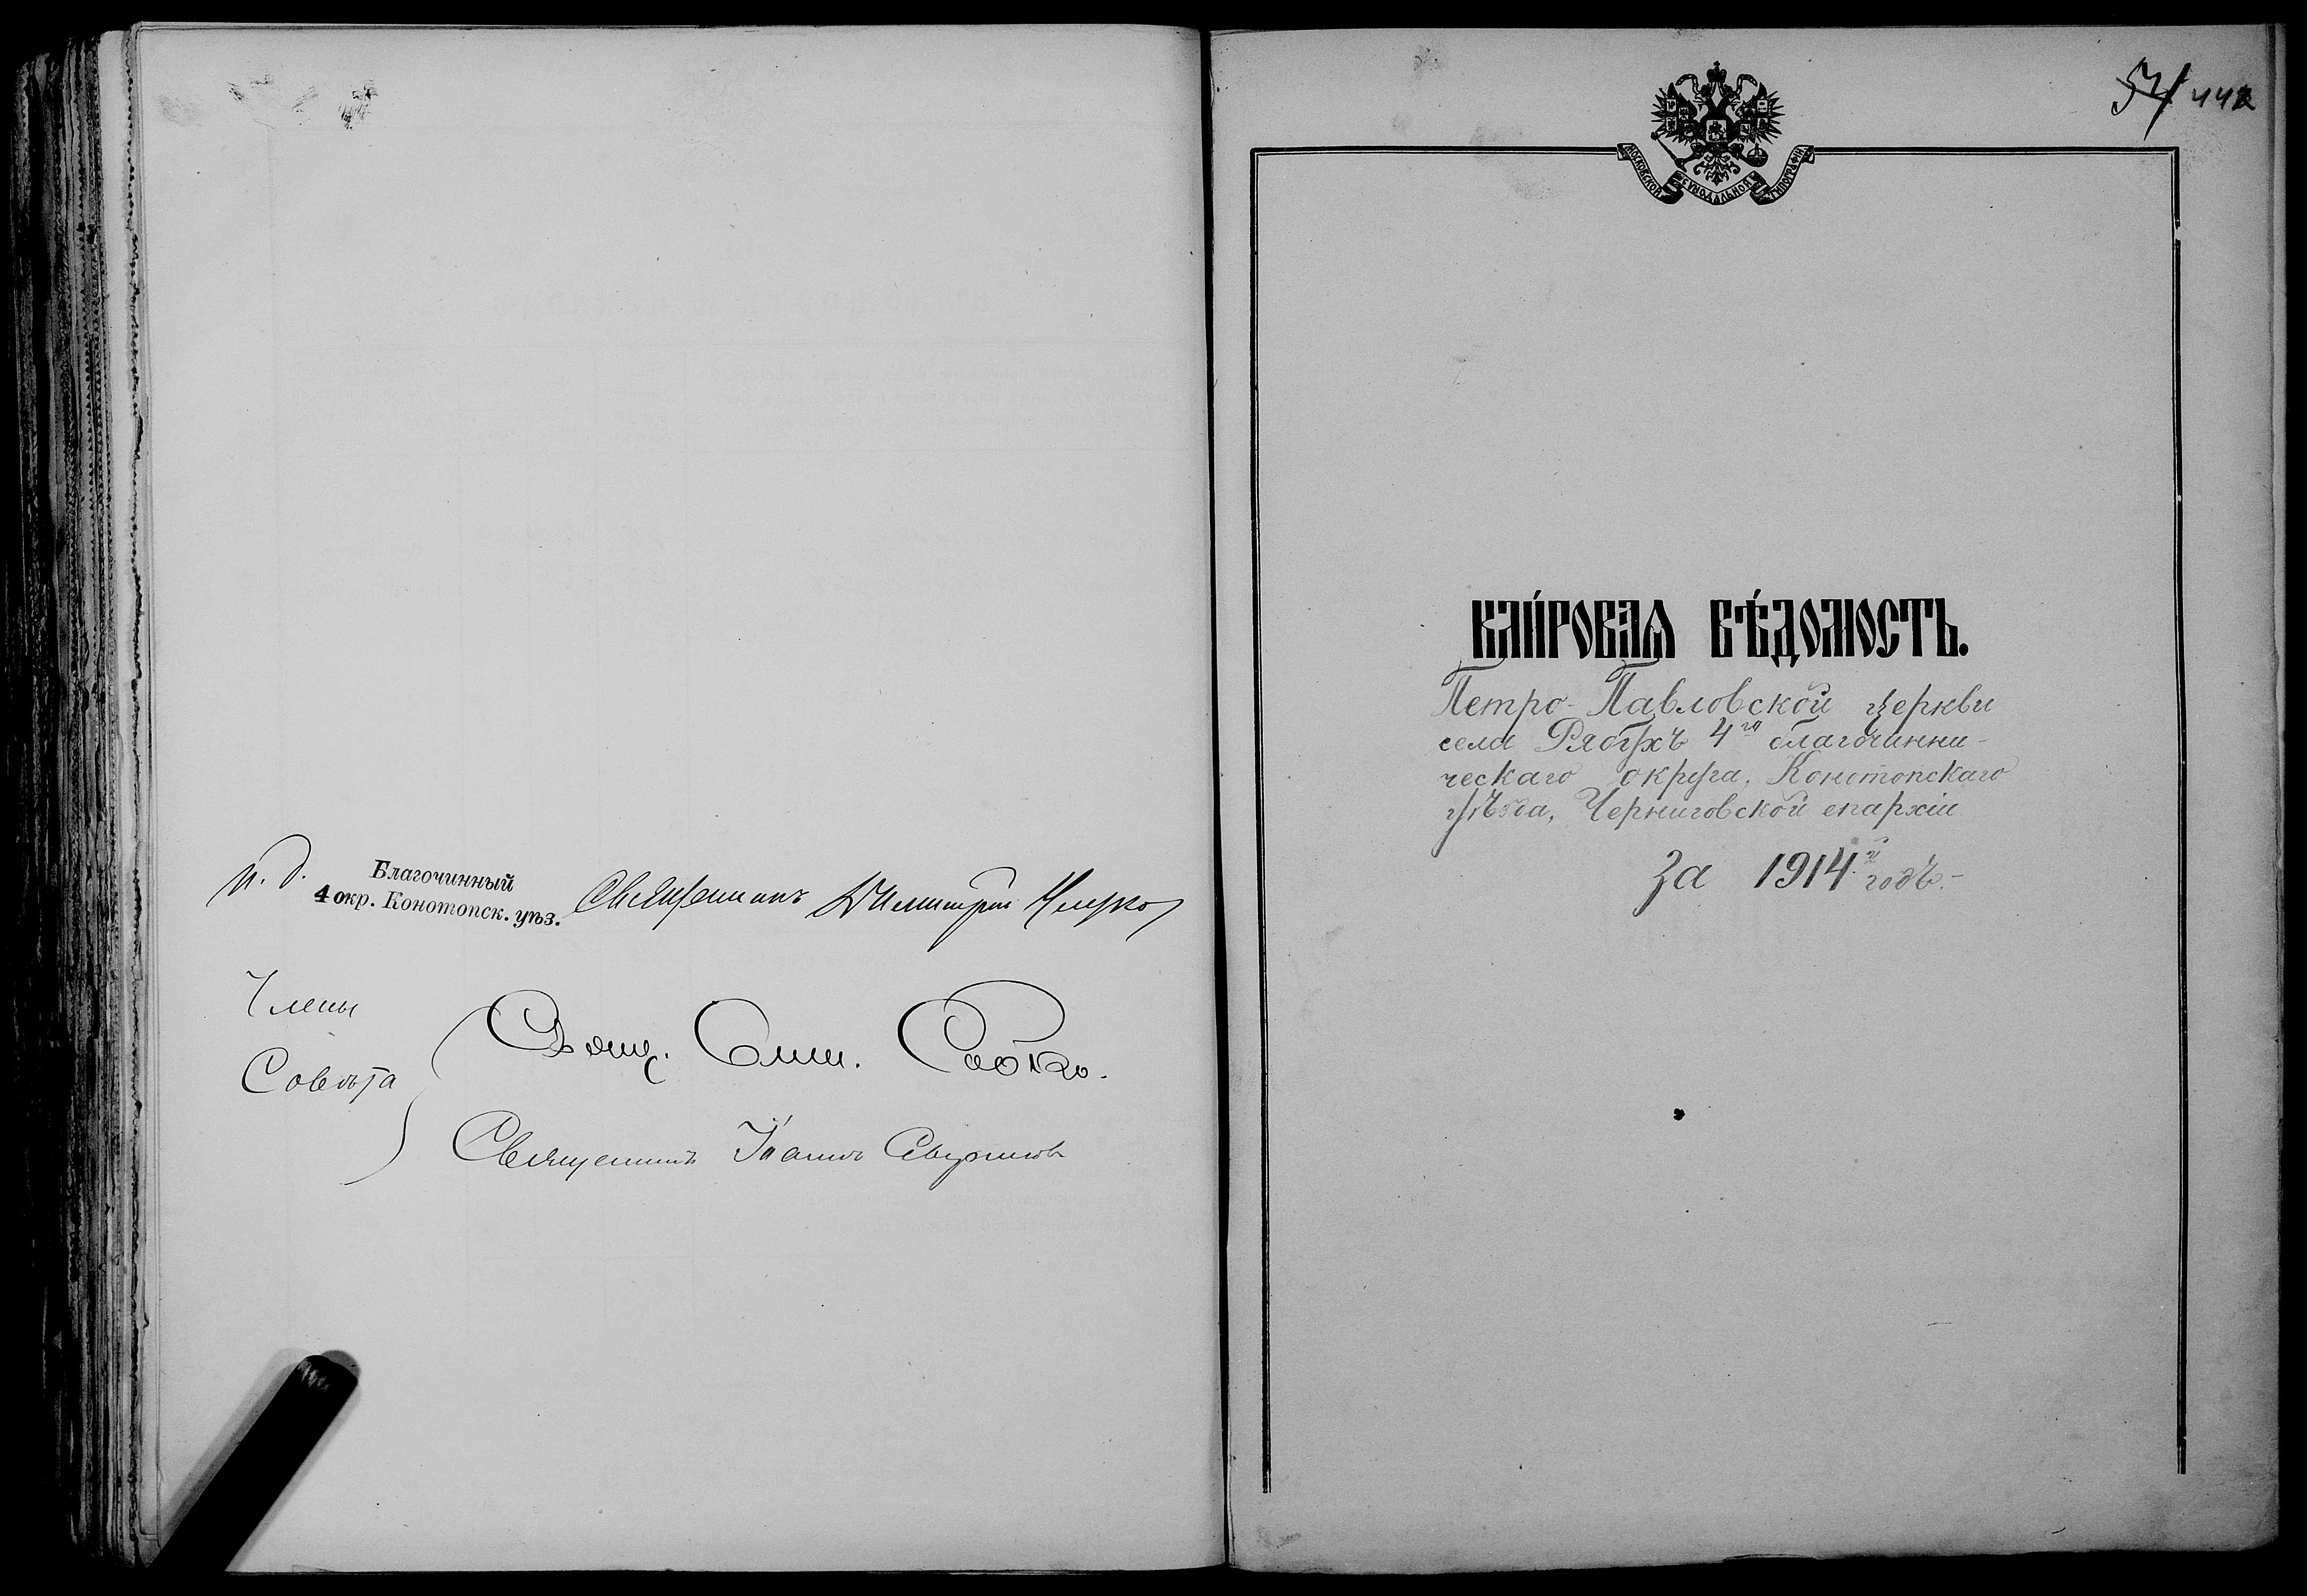 и. д. Благочинный
4 окр. Конотопск. уѣз. Священникъ Димитрій
Члены
Совѣта
Свящ.
Священникъ Іоаннъ
442
МОСКОВСКОЙ СУНОДАЛЬНОЙ ТИПОГРАФІИ
КЛИ́РОВАЯ ВѢ́ДОМОСТЬ.
Петро-Павловской церкви
села Рябухъ 4го благочинни-
ческаго округа, Конотопскаго
уѣзда, Черниговской епархіи
За 1914й годъ.-